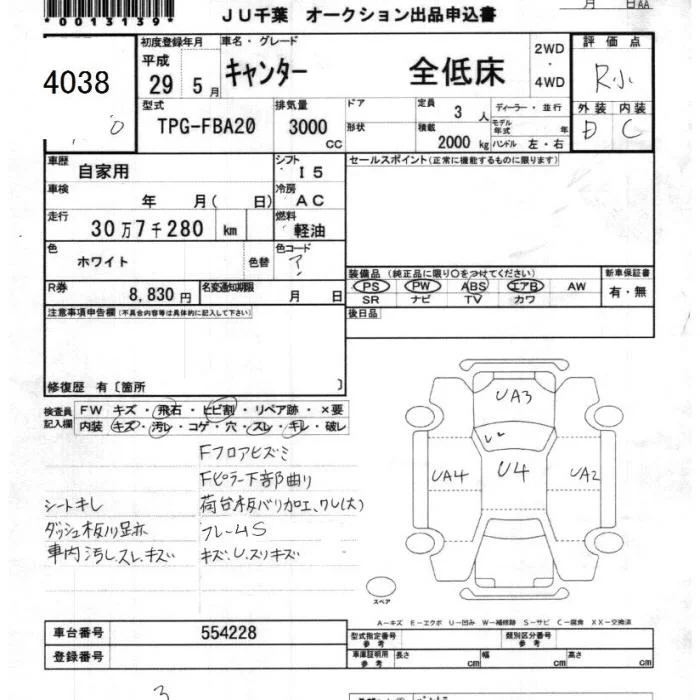 *0013139*
JU千葉 オークション出品申込書
月 日AA
4038
初度登録年月 平成 29 5月
車名・グレード キャンター 全低床
2WD・4WD
評価点 R小
型式 TPG-FBA20
排気量 3000 CC
ドア
形状
定員 3人
積載 2000 kg
ディーラー・並行
モデル年式 年
ハンドル 左・右
外装 内装
D C
車歴 自家用
シフト I5
セールスポイント(正常に機能するものに限ります)
車検 年 月( 日)
冷房 AC
走行 30万7千280 km
燃料 軽油
色 ホワイト 色替
色コード ア
装備品 (純正品に限り○をつけてください)
新車保証書
PS PW ABS エアB AW
SR ナビ TV カワ
有・無
R券 8,830円
名変通知期限 月 日
後日品
注意事項申告欄(不具合内容等は具体的に記入して下さい)
修復歴 有〔箇所 〕
検査員記入欄
FW キズ・飛石・ヒビ割・リペア跡・×要
内装 キズ・汚レ・コゲ・穴・スレ・キレ・破レ
Fフロアヒズミ
Fピラー下部曲り
シートキレ 荷台板バリ加工、ワレ(大)
ダッシュ板ハリ足亦 フレームS
車内汚レ.スレ.キズ キズ.U.スリキズ
UA3
UA4 U4 UA2
スペア
A-キズ E-エクボ U-凹み W-補修跡 S-サビ C-腐食 XX-交換済
車台番号 554228
登録番号
型式指定番号 参考
類別区分番号 参考
車庫証明用 参考 長さ cm 幅 cm 高さ cm
3